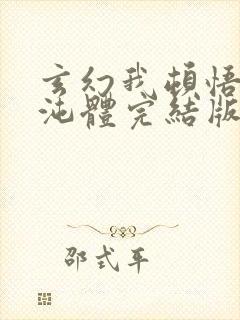 玄幻我頓悟
沌體完結版
邵式平